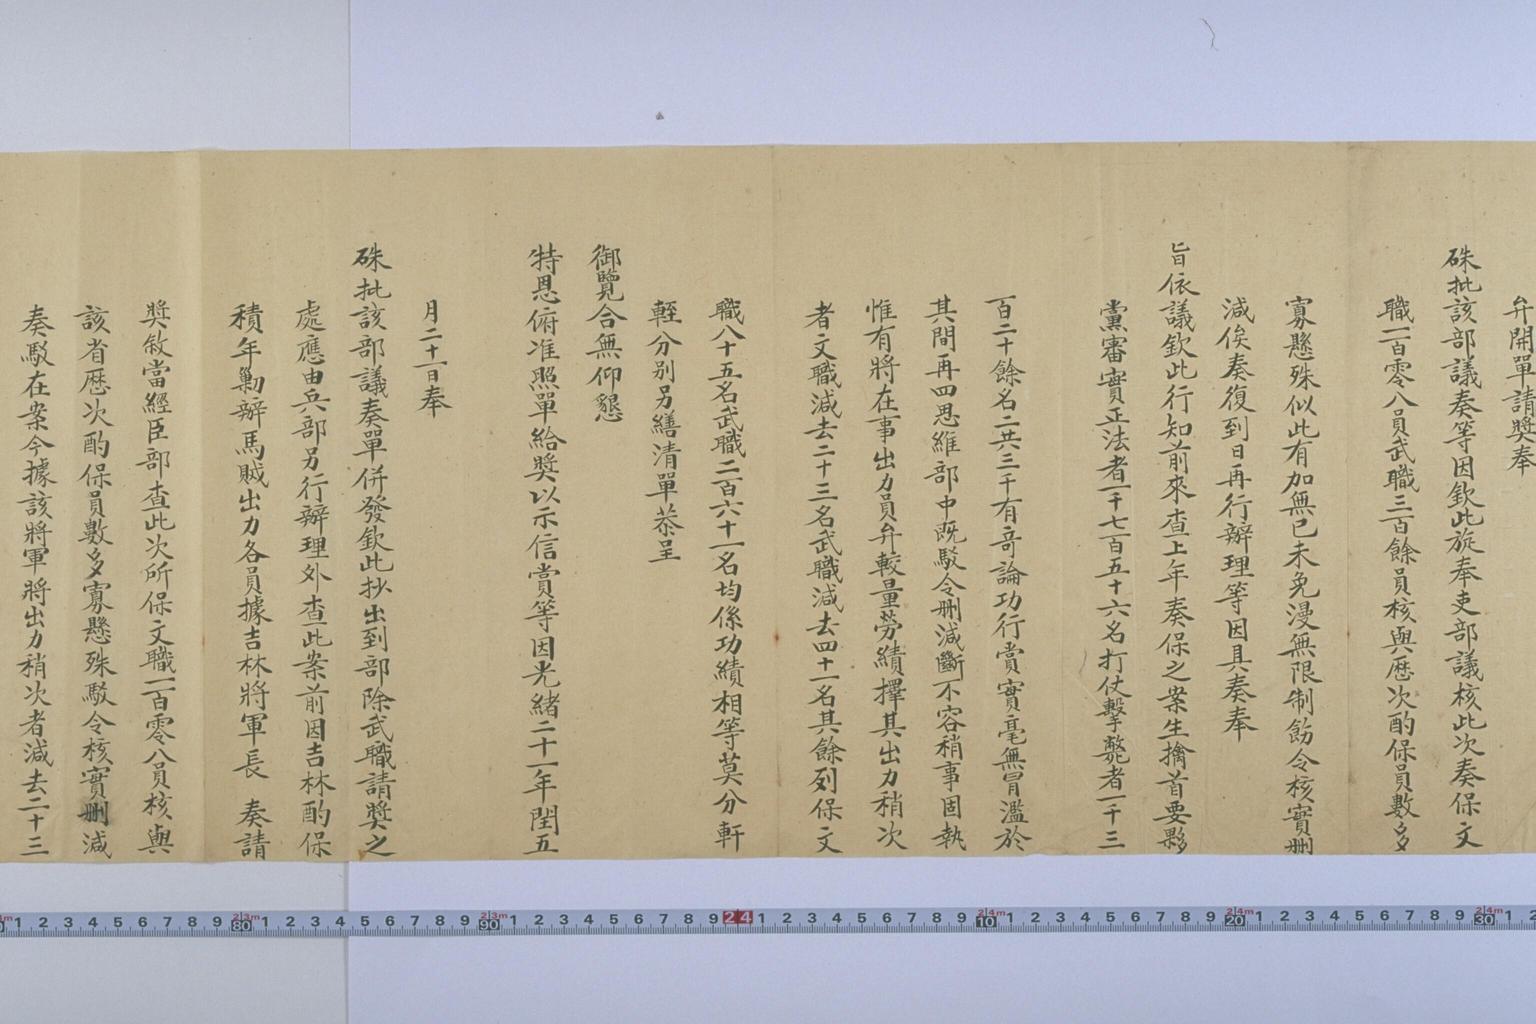 弁開單請奬奉
硃批該部議奏等因欽此旋奉吏部議核此次奏保文
職一百零八員武職三百餘員核與歷次酌保員數多
寡懸殊似此有加無已未免漫無限制飭令核實删
減俟奏復到日再行辦理等因具奏奉
旨依議欽此行知前來查上年奏保之案生擒首要夥
黨審實正法者一千七百五十六名打仗擊斃者一千三
百二十餘名二共三千有奇論功行賞實毫無冒濫於
其間再四思維部中既駁令删減斷不容稍事固執
惟有將在事出力員弁較量勞績擇其出力稍次
者文職減去二十三名武職減去四十一名其餘列保文
職八十五名武職二百六十一名均係功績相等莫分軒
輊分別另繕清單恭呈
御覽合無仰懇
特恩俯准照單給奬以示信賞等因光緒二十一年閏五
月二十一日奉
硃批該部議奏單併發欽此抄出到部除武職請奬之
處應由兵部另行辦理外查此案前因吉林酌保
積年剿辦馬賊出力各員據吉林將軍長 奏請
奬敘當經臣部查此次所保文職一百零八員核與
該省歷次酌保員數多寡懸殊駁令核實删減
奏駁在案今據該將軍將出力稍次者減去二十三
0 1 2 3 4 5 6 7 8 9 80 1 2 3 4 5 6 7 8 9 90 1 2 3 4 5 6 7 8 9 24 1 2 3 4 5 6 7 8 9 10 1 2 3 4 5 6 7 8 9 20 1 2 3 4 5 6 7 8 9 30 1 2